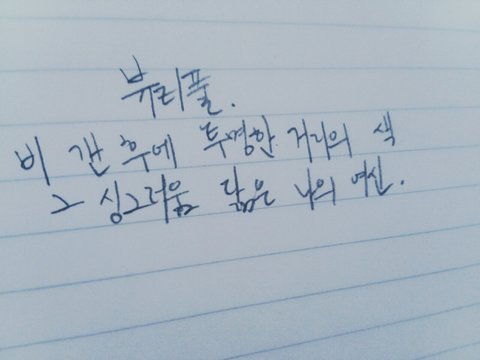 뷰리풀.
비 갠 후에 투명한 거리의 색
그 싱그러움 닮은 나의 여신.